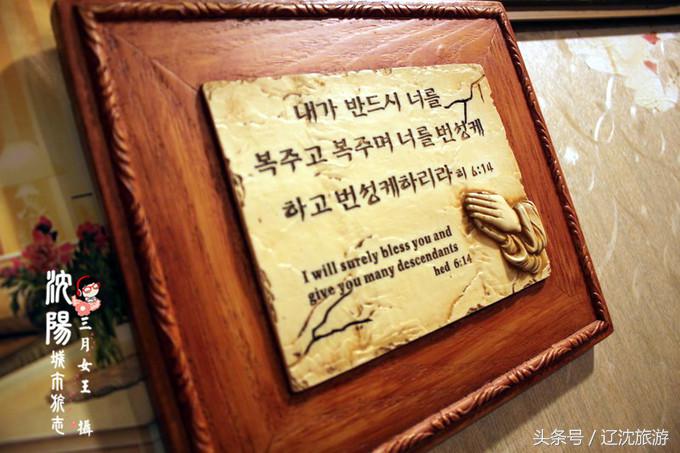 내가 반드시 너를
복주고 복주며 너를 번성케
하고 번성케하리라 히 6:14
I will surely bless you and
give you many descendants
hed 6:14
沈陽
城市旅志
三月女王 攝
头条号 / 辽沈旅游